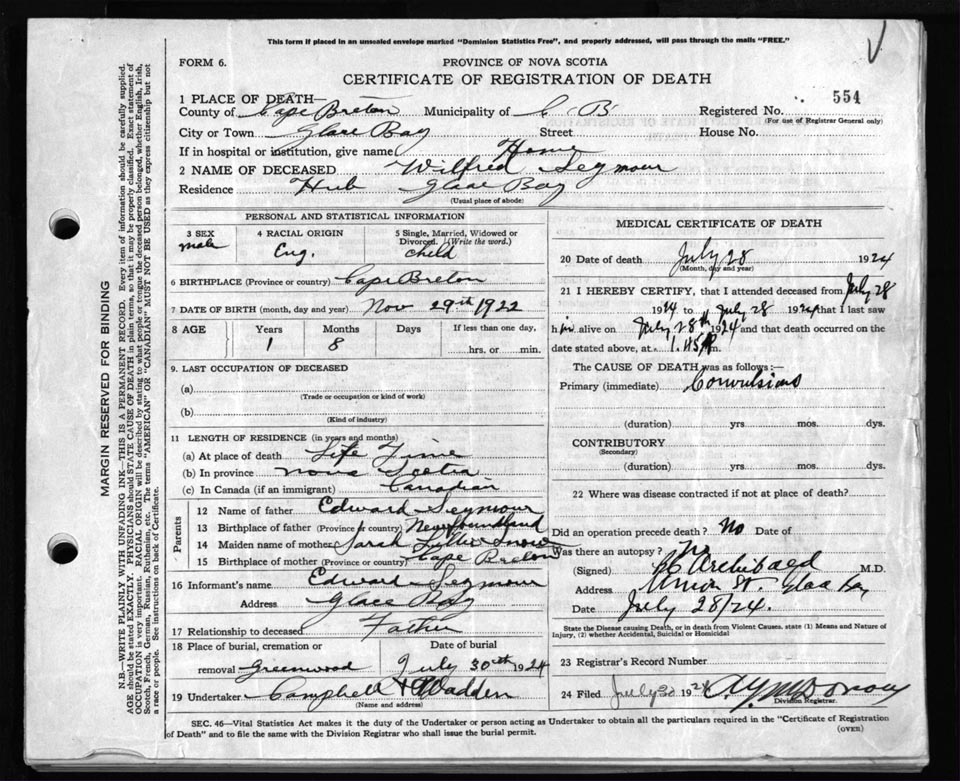 This form if placed in an unsealed envelope marked "Dominion Statistics Free", and properly addressed, will pass through the mails "FREE."
FORM 6.
PROVINCE OF NOVA SCOTIA
CERTIFICATE OF REGISTRATION OF DEATH
1 PLACE OF DEATH—
County of Cape Breton Municipality of C B Registered No. 554
(For use of Registrar General only)
City or Town Glace Bay Street House No.
If in hospital or institution, give name Home
2 NAME OF DECEASED Wilfred Seymour
Residence Hub Glace Bay
(Usual place of abode)
PERSONAL AND STATISTICAL INFORMATION
3 SEX 4 RACIAL ORIGIN 5 Single, Married, Widowed or
Divorced. (Write the word.)
male Eng. child
6 BIRTHPLACE (Province or country) Cape Breton
7 DATE OF BIRTH (month, day and year) Nov 29th 1922
8 AGE Years Months Days If less than one day,
1 8 hrs. or min.
9. LAST OCCUPATION OF DECEASED
(a)
(Trade or occupation or kind of work)
(b)
(Kind of industry)
11 LENGTH OF RESIDENCE (in years and months)
(a) At place of death Life Time
(b) In province Nova Scotia
(c) In Canada (if an immigrant) Canadian
Parents
12 Name of father Edward Seymour
13 Birthplace of father (Province or country) Newfoundland
14 Maiden name of mother Sarah Snow
15 Birthplace of mother (Province or country) Cape Breton
16 Informant's name Edward Seymour
Address Glace Bay
17 Relationship to deceased Father
18 Place of burial, cremation or Date of burial
removal Greenwood July 30th 1924
19 Undertaker Campbell & Wadden
(Name and address)
MEDICAL CERTIFICATE OF DEATH
20 Date of death July 28 1924
(Month, day and year)
21 I HEREBY CERTIFY, that I attended deceased from July 28
1924 to July 28 1924 that I last saw
him alive on July 28th 1924 and that death occurred on
date stated above, at 1.45 P m.
The CAUSE OF DEATH was as follows:—
Primary (immediate) Convulsions
(duration) yrs. mos. dys.
CONTRIBUTORY
(Secondary)
(duration) yrs. mos. dys.
22 Where was disease contracted if not at place of death?
Did an operation precede death? No Date of
Was there an autopsy? No
(Signed) Archibald M.D.
Address Union St. Glace Bay
Date July 28/24.
State the Disease causing Death, or in death from Violent Causes. state (1) Means and Nature of
Injury, (2) whether Accidental, Suicidal or Homicidal
23 Registrar's Record Number
24 Filed July 30 1924
Division Registrar.
SEC. 46—Vital Statistics Act makes it the duty of the Undertaker or person acting as Undertaker to obtain all the particulars required in the "Certificate of Registration
of Death" and to file the same with the Division Registrar who shall issue the burial permit.
(OVER)
MARGIN RESERVED FOR BINDING
N.B.—WRITE PLAINLY WITH UNFADING INK—THIS IS A PERMANENT RECORD. Every item of information should be carefully supplied.
AGE should be stated EXACTLY. PHYSICIANS should STATE CAUSE OF DEATH in plain terms, so that it may be properly classified. Exact statement of
OCCUPATION is very important. RACIAL ORIGIN will be described by stating to what people or tongue the deceased person belonged, whether English, Irish,
Scotch, French, German, Russian, Ruthenian, etc. The terms "AMERICAN" OR "CANADIAN" MUST NOT BE USED as they express citizenship but not
a race or people. See instructions on back of Certificate.